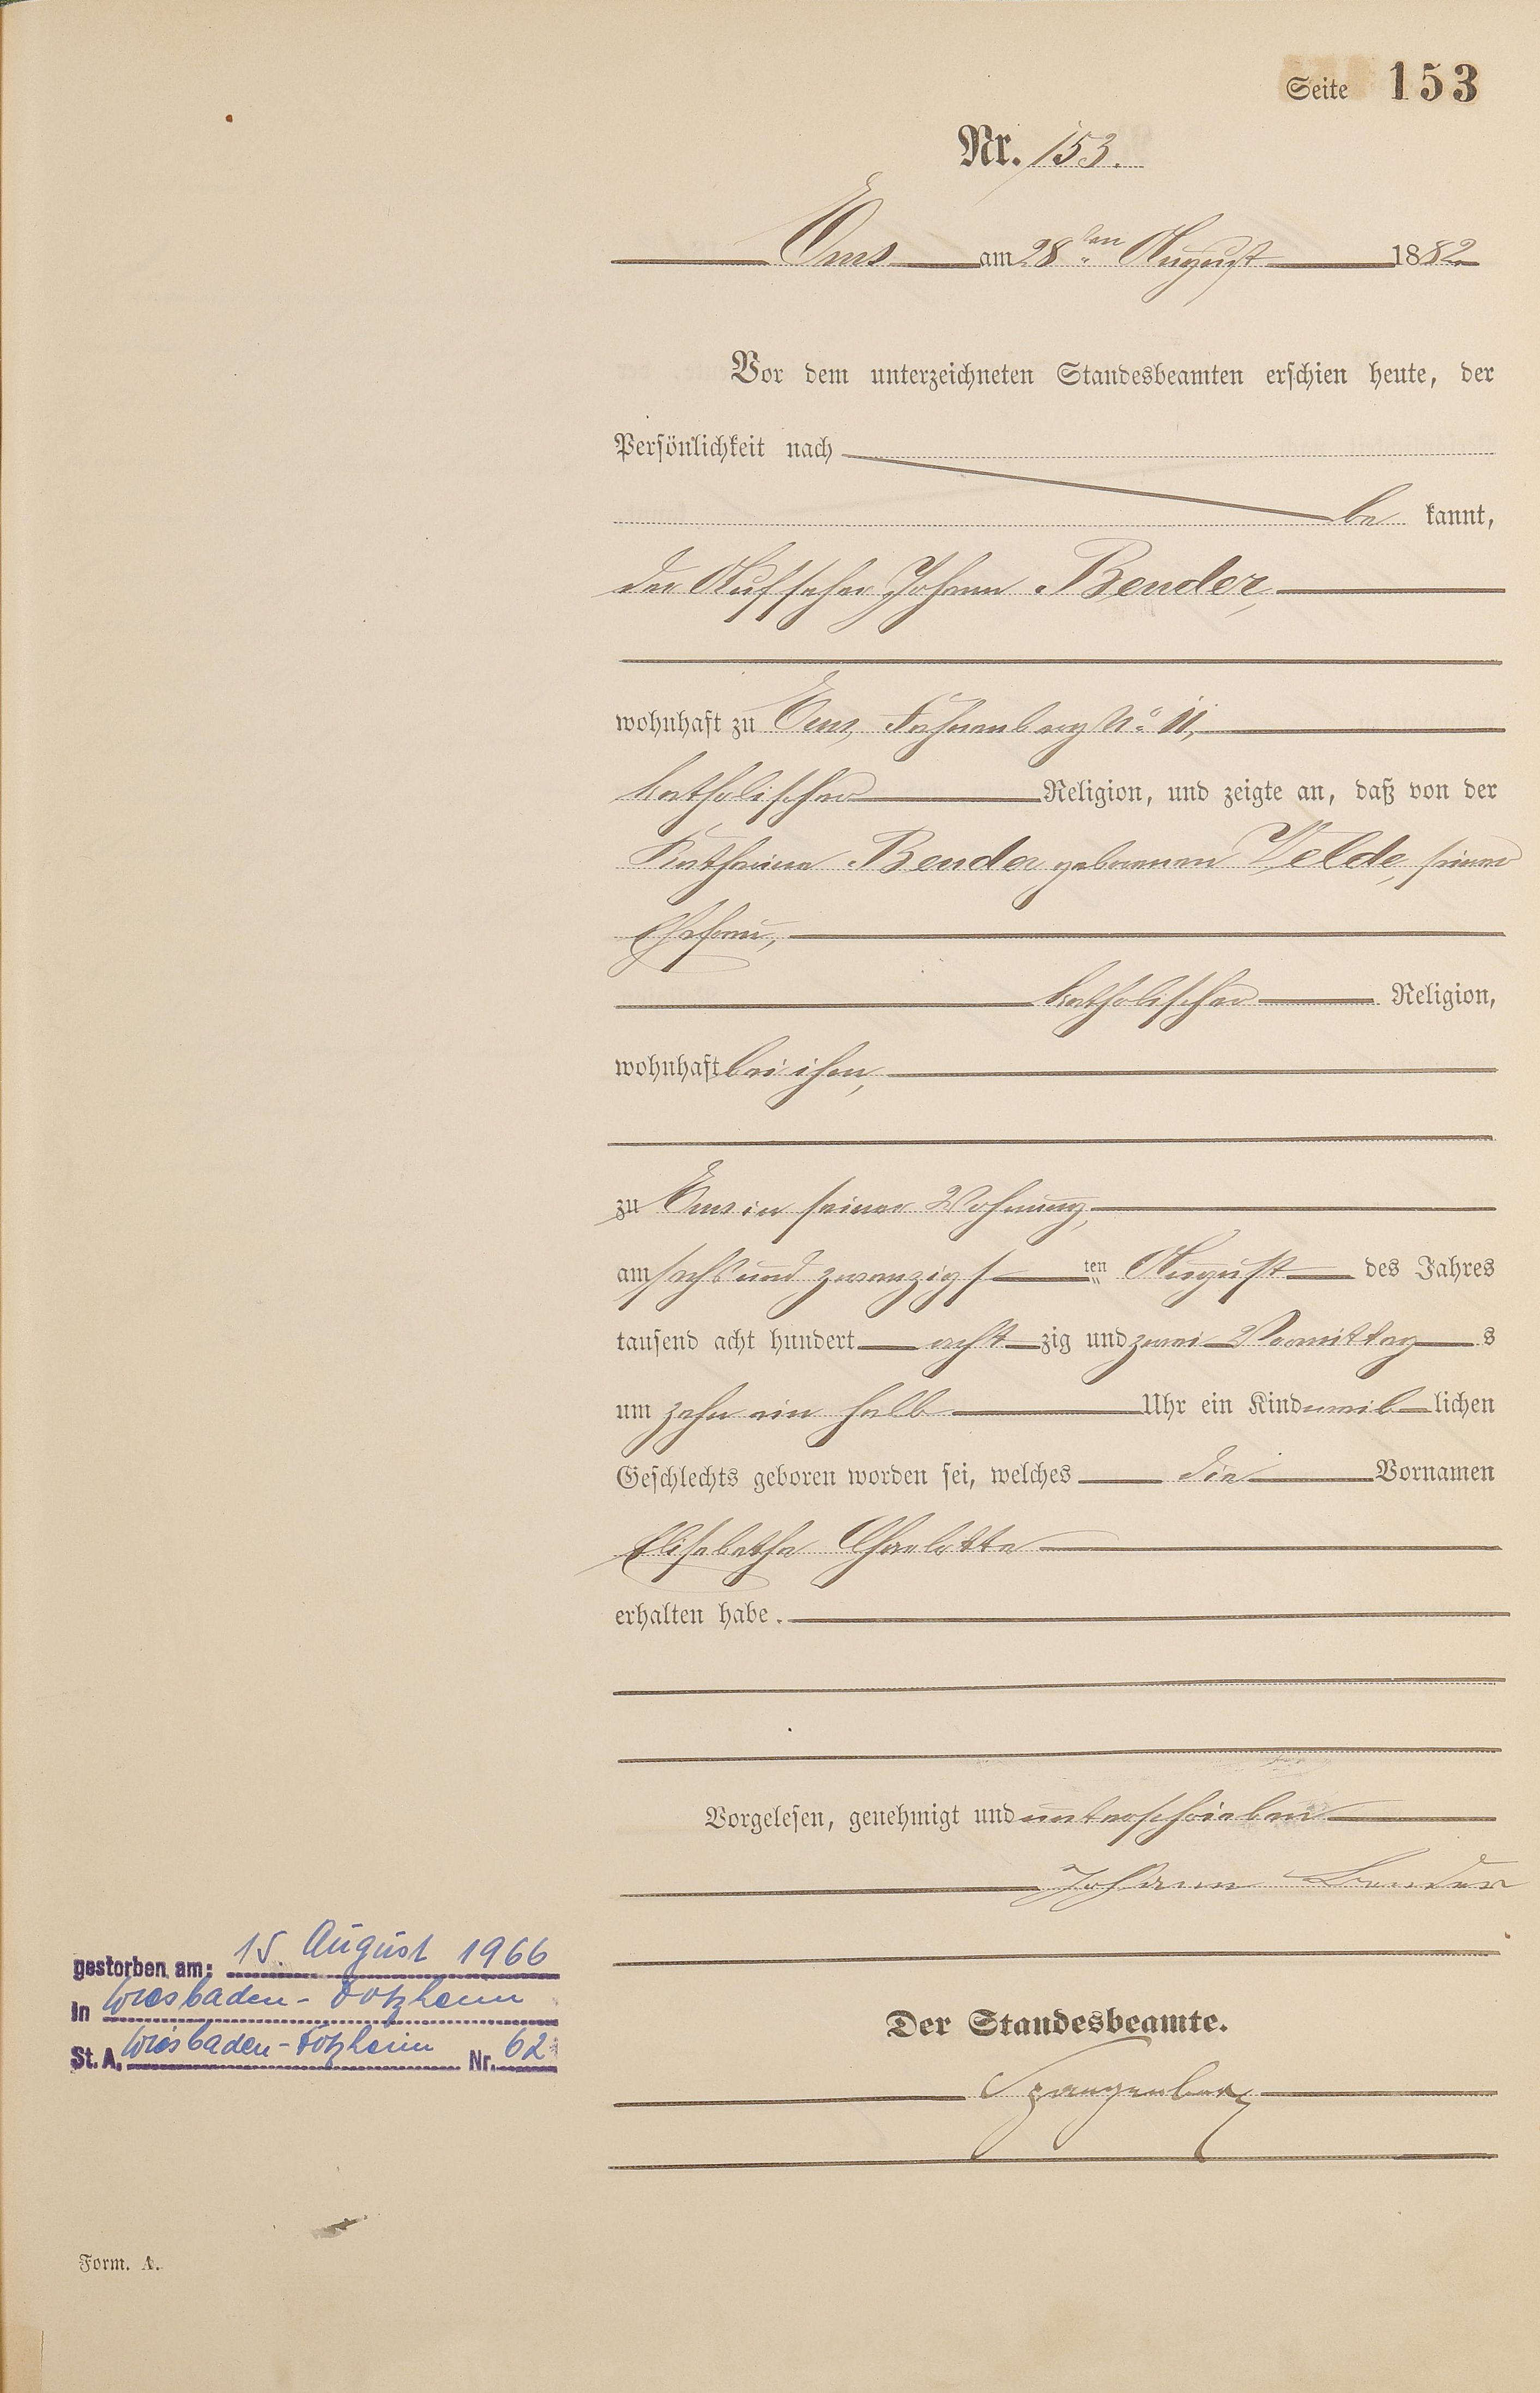 Seite 153
Nr. 153.
Ems am 28ten August 1882
Vor dem unterzeichneten Standesbeamten erschien heute, der
Persönlichkeit nach
be kannt,
der Aufseher Johann Bender,
wohnhaft zu Ems, No 11,
katholischer Religion, und zeigte an, daß von der
Katharina Bender geborenen Velde, seiner
Ehefrau,
katholischer Religion,
wohnhaft bei ihm,
zu Ems in seiner Wohnung,
am sechs und zwanzigsten August des Jahres
tausend acht hundert acht zig und zwei Vormittags
um zehn ein halb Uhr ein Kind weiblichen
Geschlechts geboren worden sei, welches die Vornamen
Elisabetha Charlotte
erhalten habe.
Vorgelesen, genehmigt und unterschrieben
Johann Bender
gestorben am: 15. August 1966
in Wiesbaden-Dotzheim
St. A. Wiesbaden-Dotzheim Nr. 62
Der Standesbeamte.
Spangenberg
Form. A.